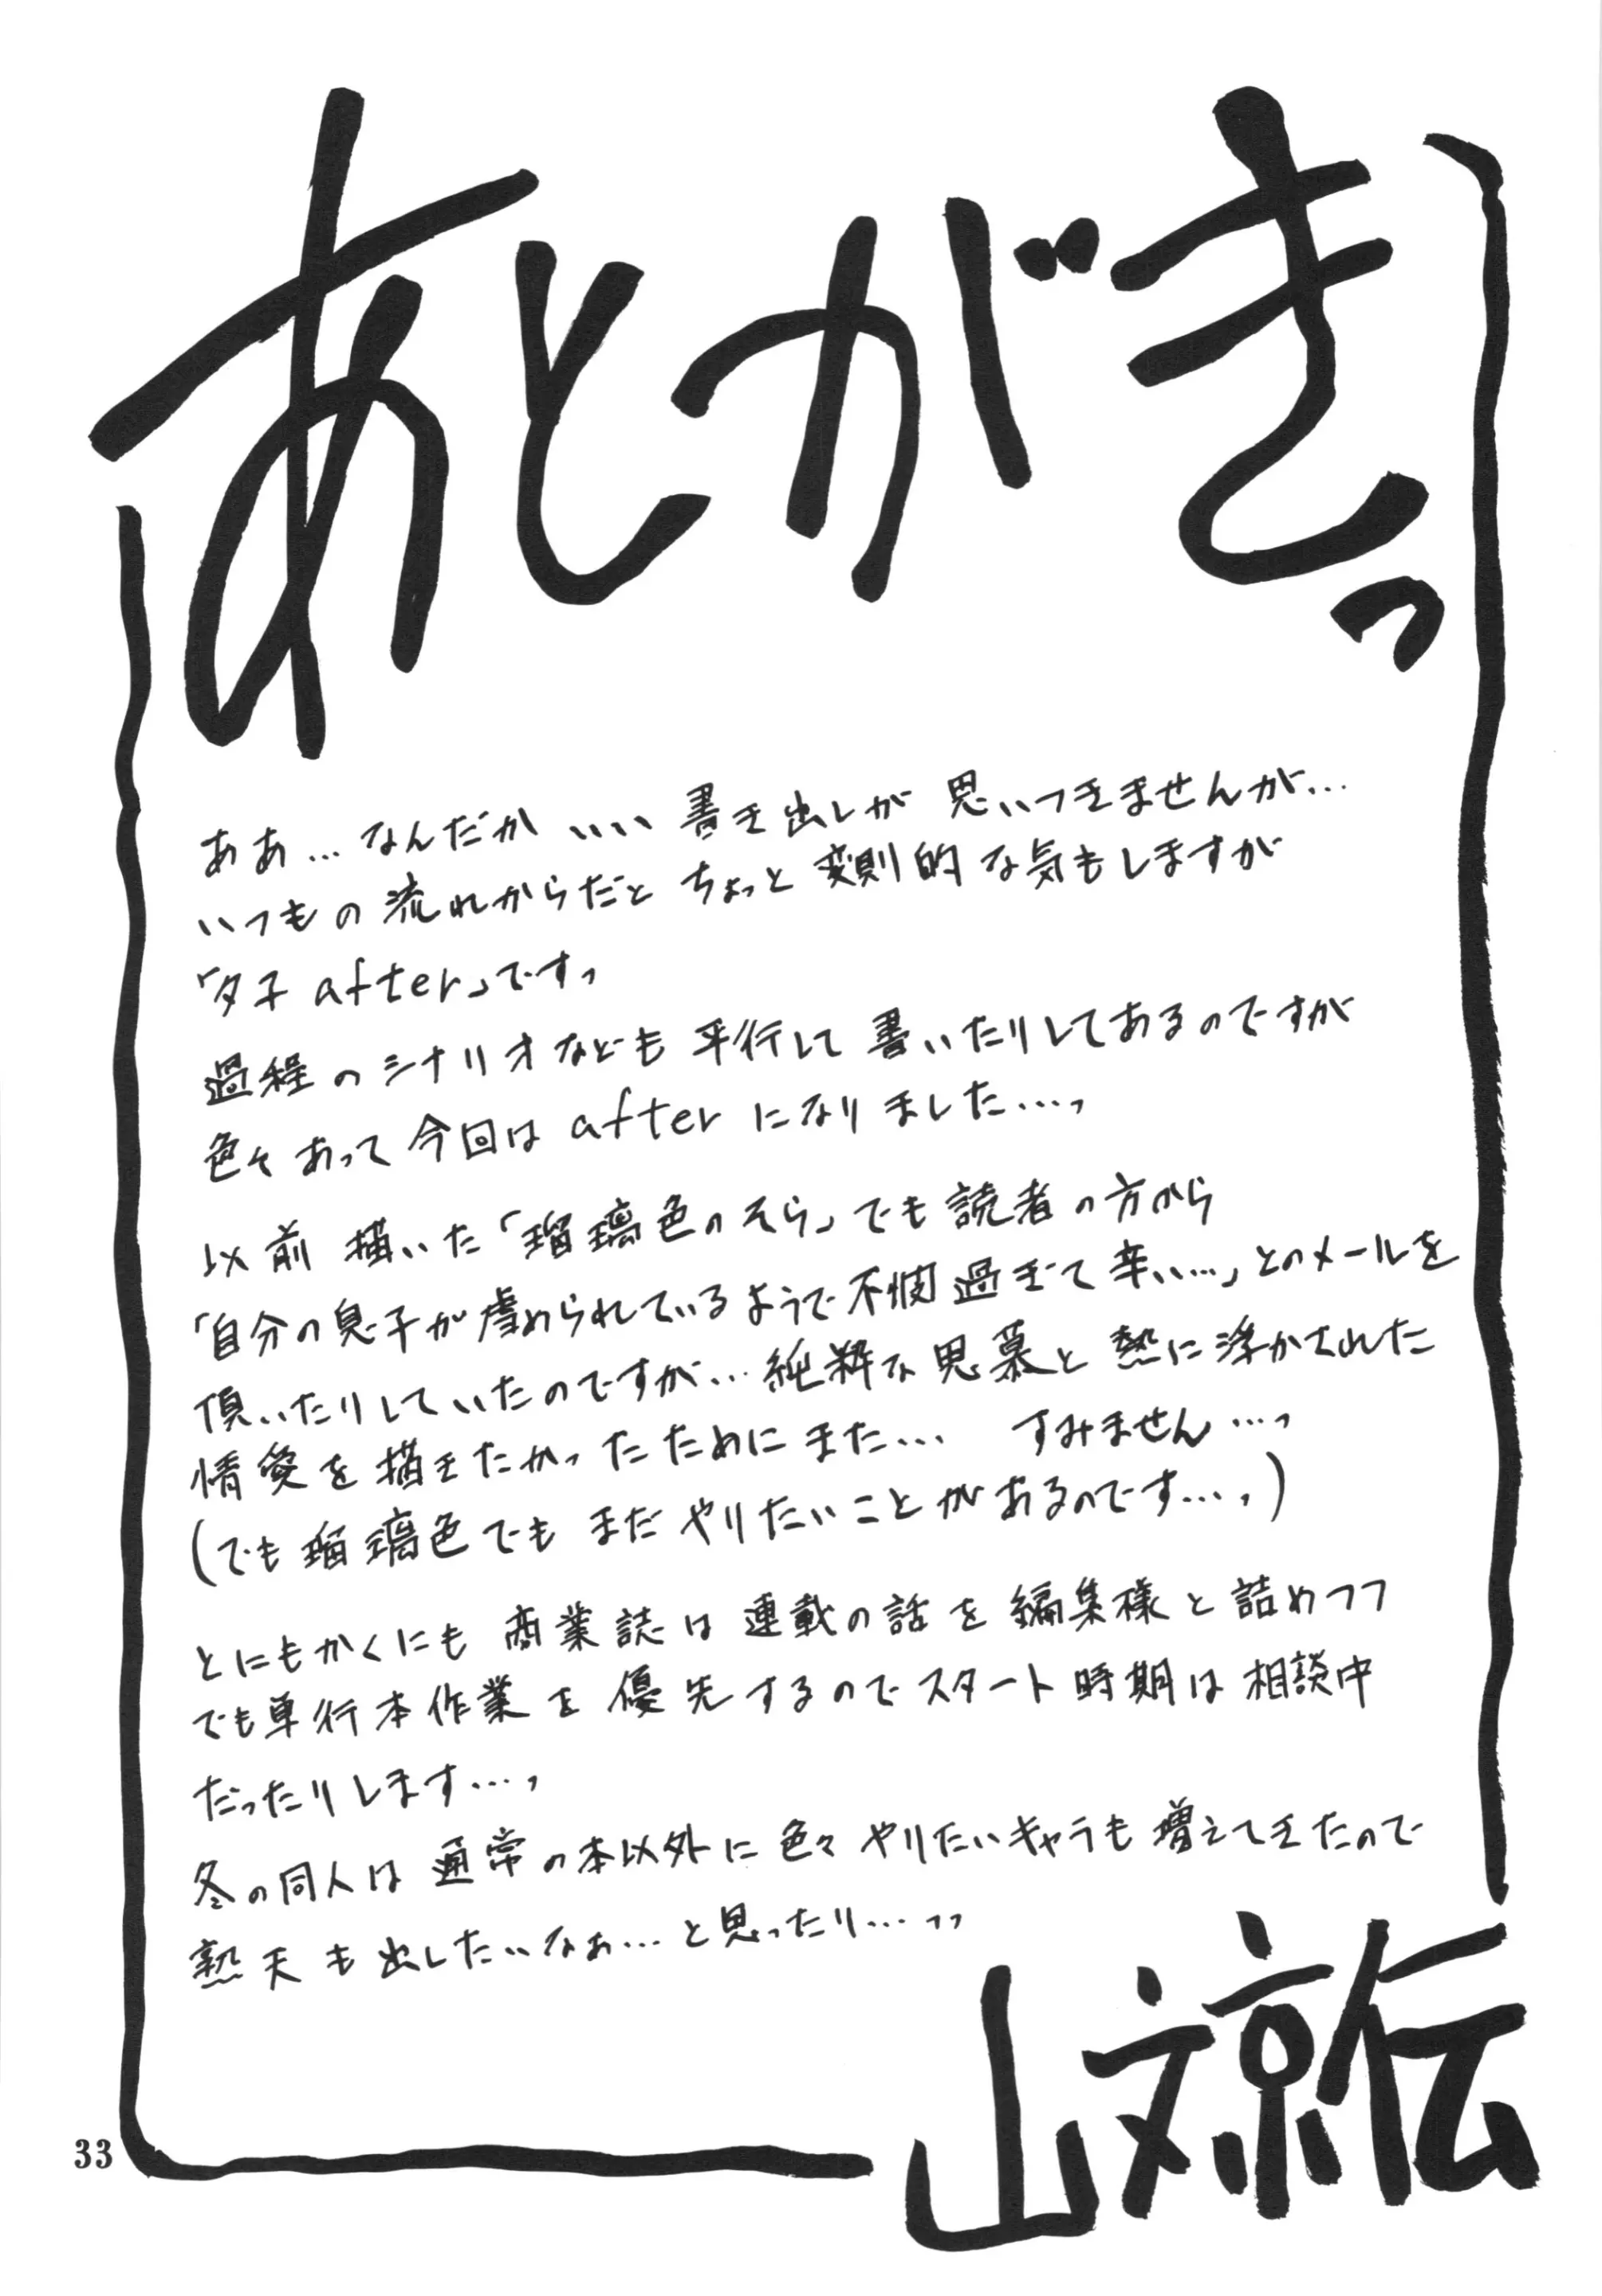 あとがきっ
ああ…なんだかいい書き出しが思いつきませんが…
いつもの流れからだとちょっと変則的な気もしますが
「夕子after」ですっ
過程のシナリオなども平行して書いたりしてあるのですが
色々あって今回はafterになりました…っ
以前描いた「瑠璃色のそら」でも読者の方から
「自分の息子が虐められているようで不憫過ぎて辛い…」とのメールを
頂いたりしていたのですが…純粋な思慕と熱に浮かされた
情愛を描きたかったためにまた… すみません…っ
(でも瑠璃色でもまだやりたいことがあるのです…っ)
とにもかくにも商業誌は連載の話を編集様と詰めつつ
でも単行本作業を優先するのでスタート時期は相談中
だったりします…っ
冬の同人は通常の本以外に色々やりたいキャラも増えてきたので
熱天も出したいなぁ…と思ったり…っっ
山文京伝
33